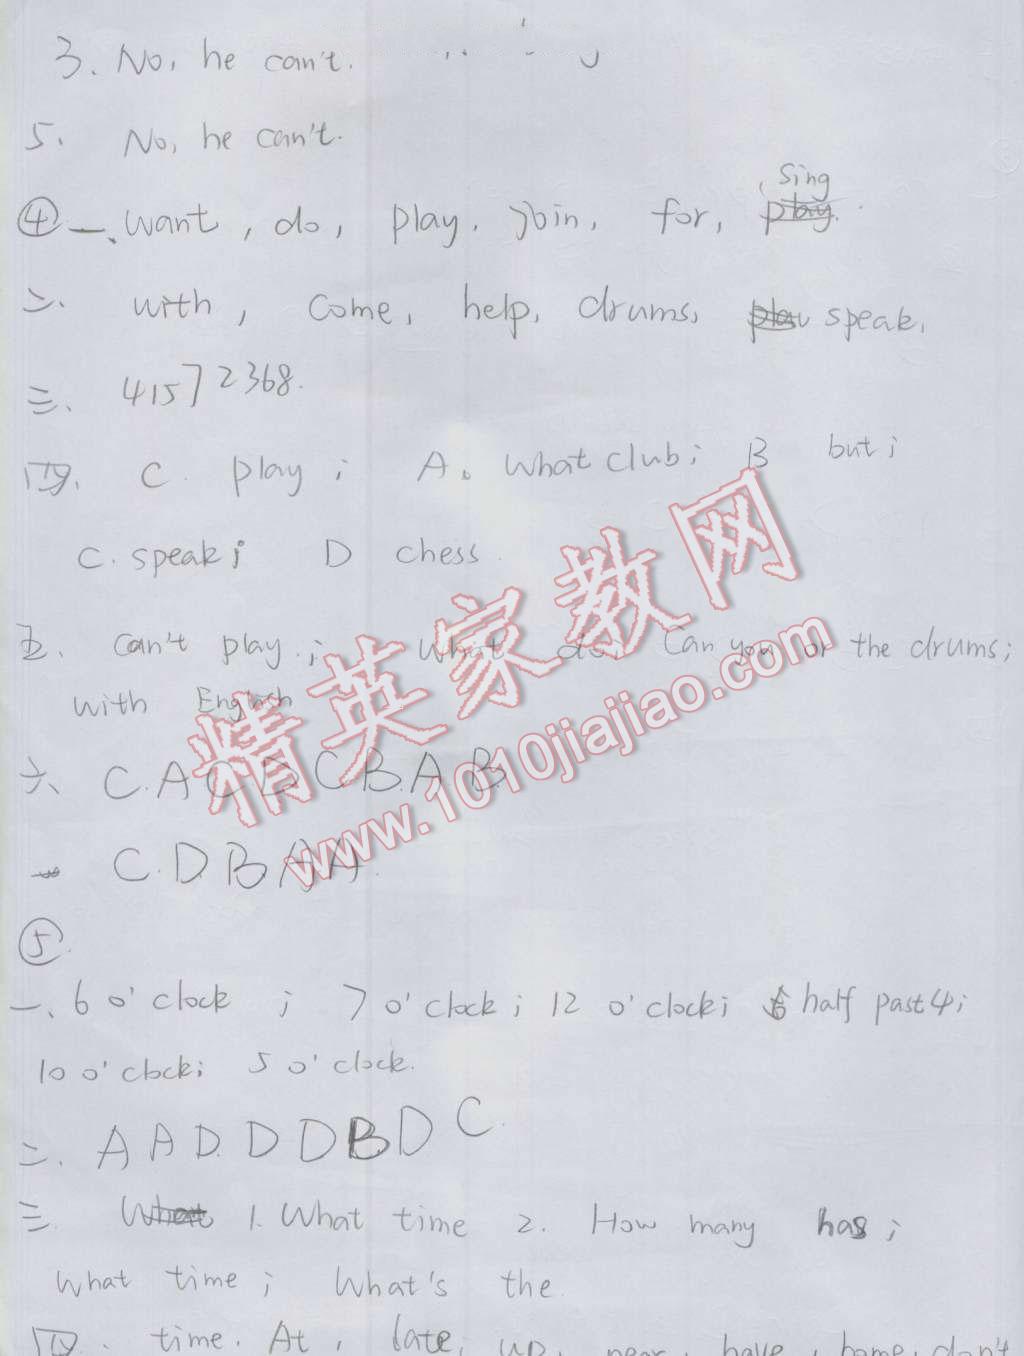 3. No, he can't.
5. No, he can't.
④ 一、want, do, play, join, for, sing
二、with, come, help, drums, speak,
三、41572368.
四、C. play; A. what club; B but;
C. speak; D chess.
五、can't play; What do, Can you or the drums;
with English
六、C.A C D C B.A.B
一 C.D.B A A.
⑤.
一、6 o'clock; 7 o'clock; 12 o'clock; half past 4;
10 o'clock; 5 o'clock.
二、A A D. D D B D C.
三 What 1. What time 2. How many has;
What time; What's the
四、time. At, late, up, near, have, home, don't
精英家教网
www.1010jiajiao.com